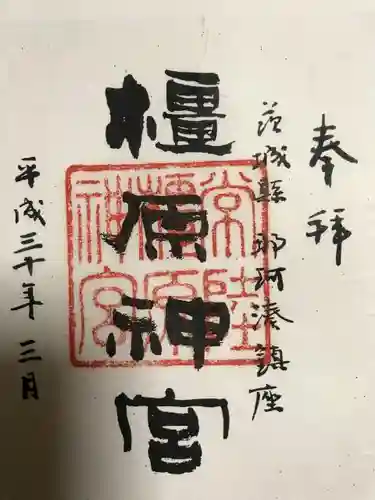 奉拝
茨城縣那珂湊鎮座
橿原神宮
常陸橿原神宮
平成三十年三月